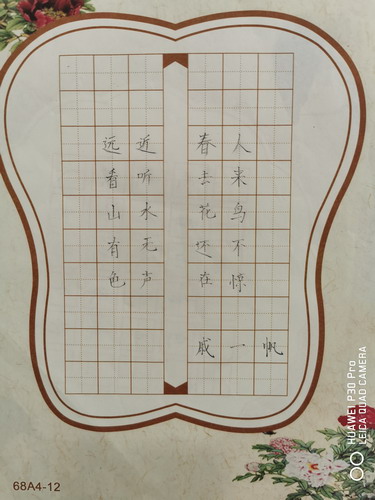 远看山有色
近听水无声
春去花还在
人来鸟不惊
戚一帆
68A4-12
HUAWEI P30 Pro
LEICA QUAD CAMERA